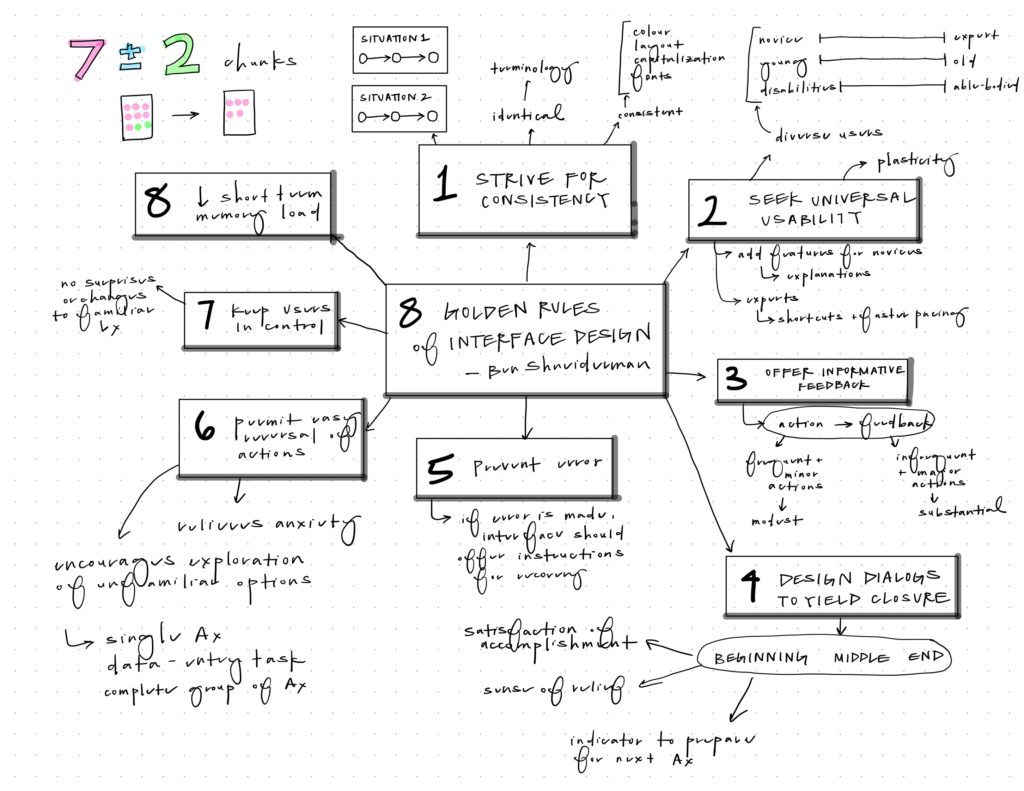 7 ± 2 chunks
SITUATION 1
SITUATION 2
terminology
identical
colour
layout
capitalization
fonts
consistent
novice
expert
young
old
disabilities
able-bodied
diverse users
plasticity
8 ↓ short term
memory load
1 STRIVE FOR
CONSISTENCY
2 SEEK UNIVERSAL
USABILITY
add features for novices
explanations
experts
shortcuts + faster pacing
no surprises
or changes
to familiar
bx
7 keep users
in control
8 GOLDEN RULES
of INTERFACE DESIGN
— Ben Shneiderman
3 OFFER INFORMATIVE
FEEDBACK
action → feedback
frequent +
minor
actions
modest
infrequent
+ major
actions
substantial
6 permit easy
reversal of
actions
relieves anxiety
encourages exploration
of unfamiliar options
single Ax
data-entry task
complete group of Ax
5 prevent error
if error is made,
interface should
offer instructions
for recovery
4 DESIGN DIALOGS
TO YIELD CLOSURE
BEGINNING MIDDLE END
satisfaction of
accomplishment
sense of relief
indicator to prepare
for next Ax